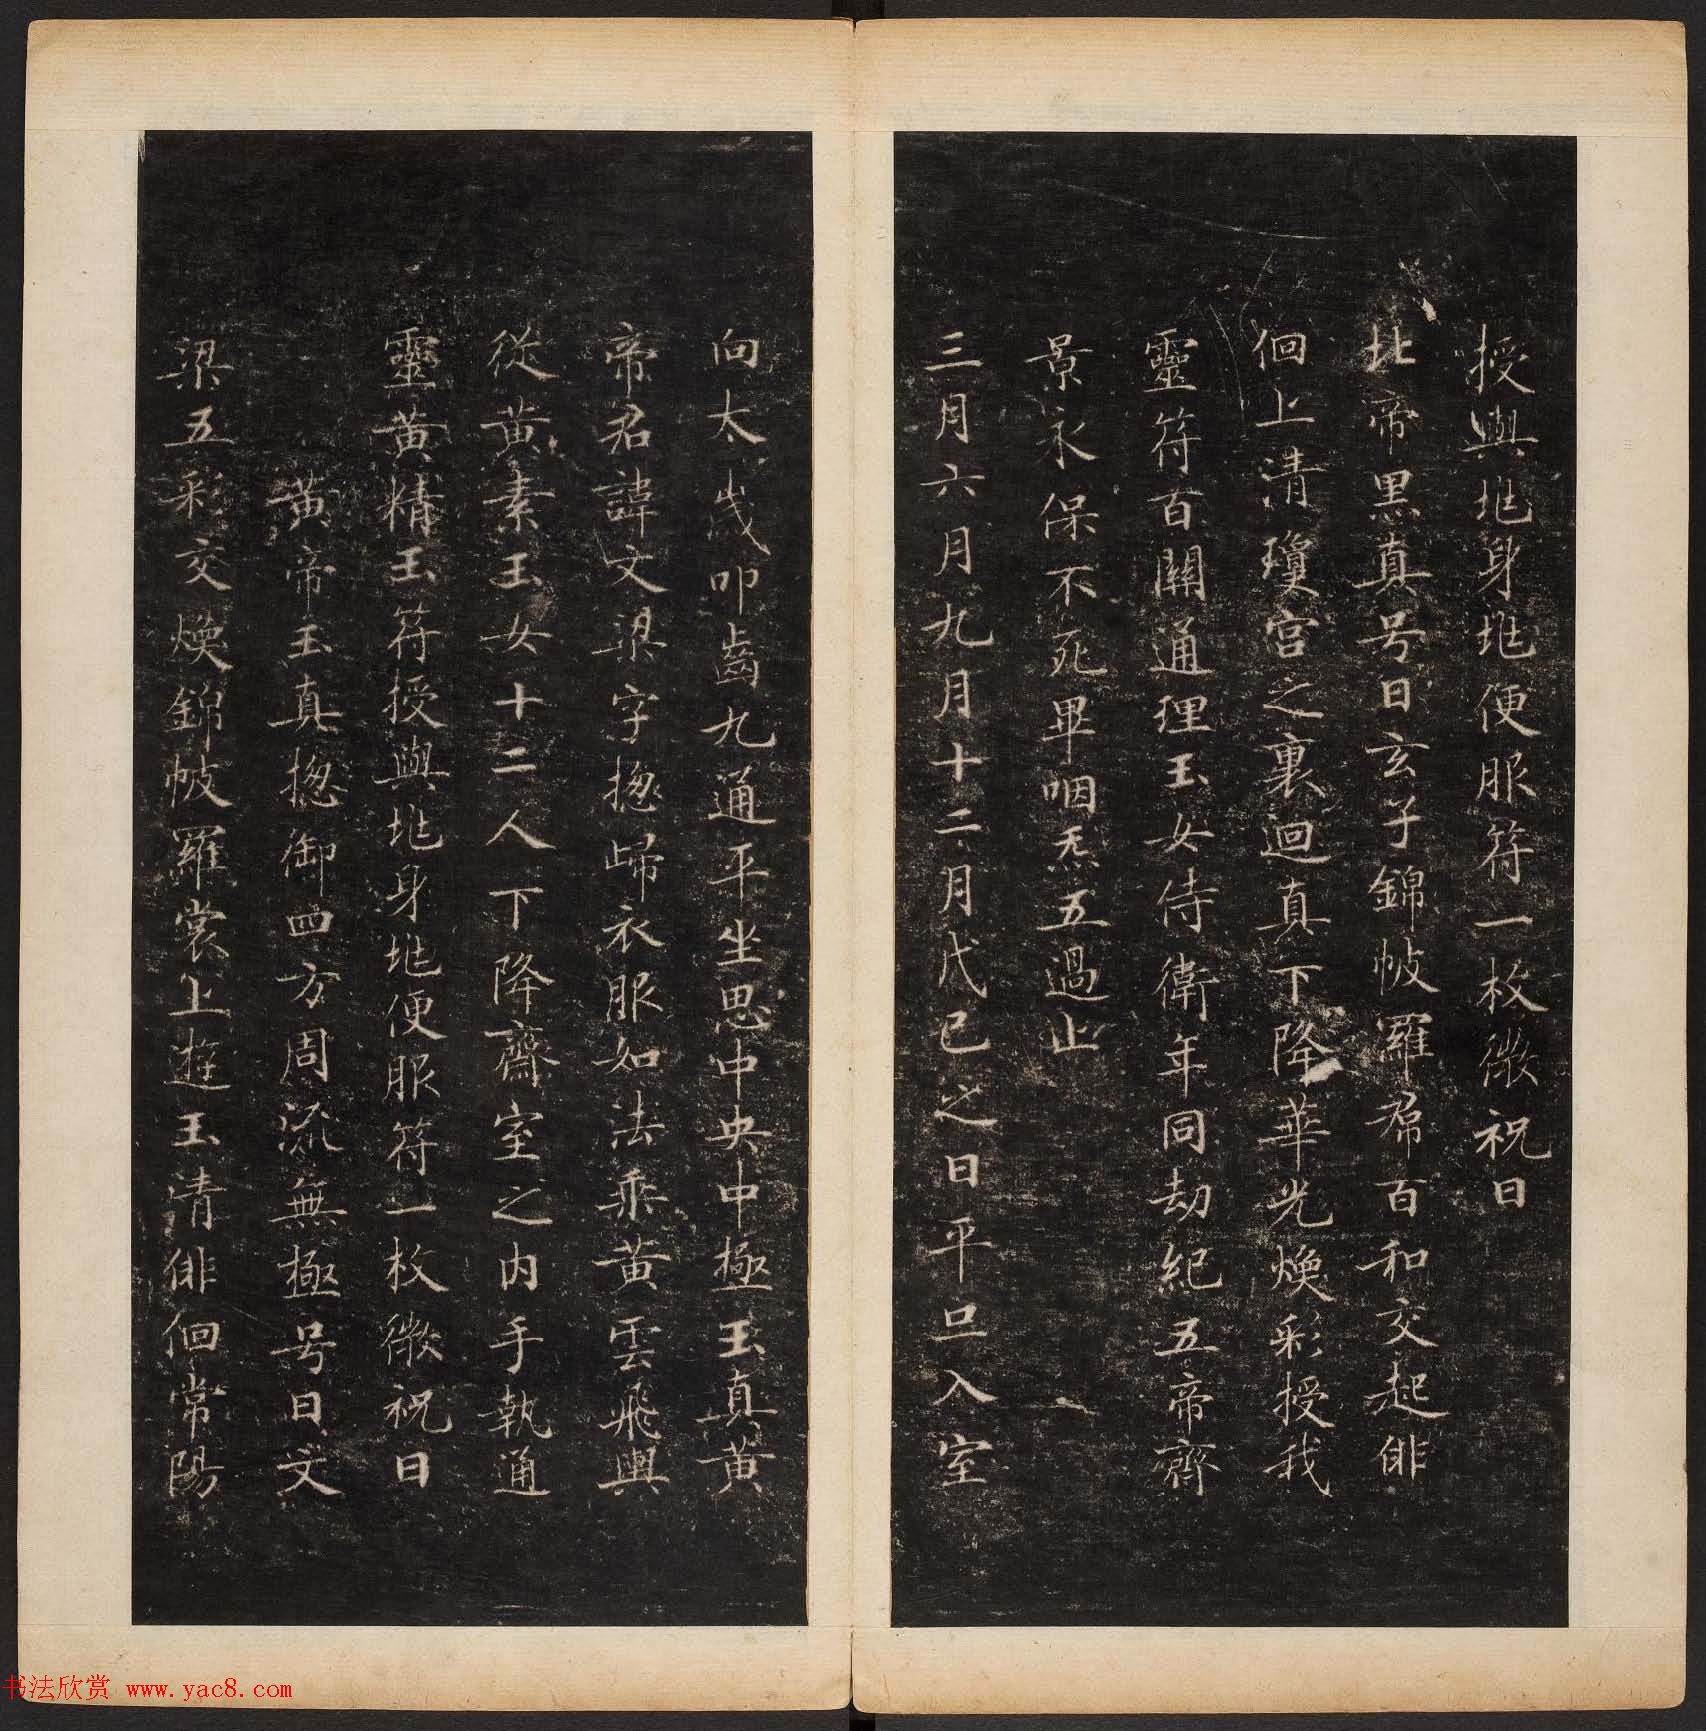 授與兆身兆便服符一枚微祝曰
北帝黑真号曰玄子錦帔羅帬百和交起俳
佪上清瓊宮之裏迴真下降華光煥彩授我
靈符百關通理玉女侍衛年同劫紀五帝齊
景永保不死畢咽炁五過止
三月六月九月十二月戊己之日平旦入室
向太歲叩齒九通平坐思中央中極玉真黃
帝君諱文梁字揔歸衣服如法乘黃雲飛輿
從黃素玉女十二人下降齋室之內手執通
靈黃精玉符授與兆身兆便服符一枚微祝曰
黃帝玉真揔御四方周流無極号曰文
梁五彩交煥錦帔羅裳上遊玉清俳佪常陽
书法欣赏 www.yac8.com